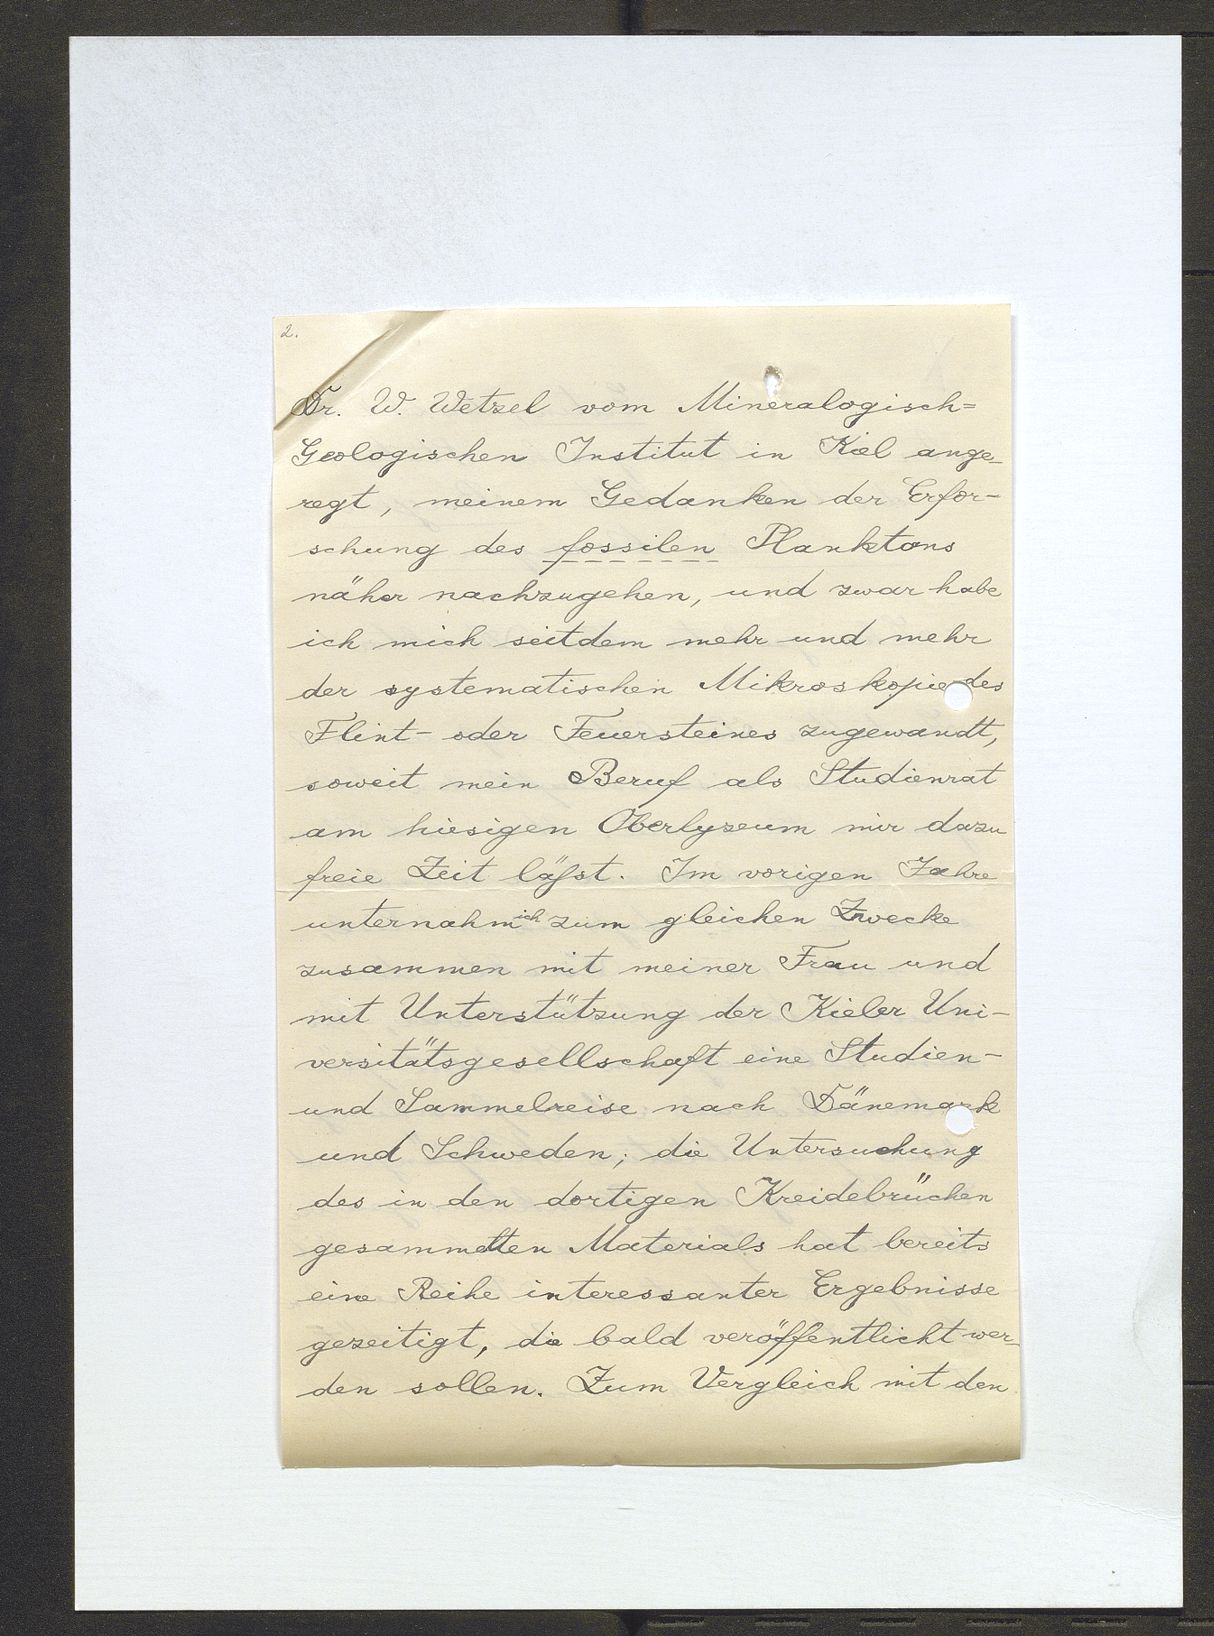 2.
Dr. W. Wetzel vom Mineralogisch=
Geologischen Institut in Kiel ange-
regt, meinem Gedanken der Erfor-
schung des fossilen Planktons
näher nachzugehen, und zwar habe
ich mich seitdem mehr und mehr
der systematischen Mikroskopie des
Flint- oder Feuersteines zugewandt,
soweit mein Beruf als Studienrat
am hiesigen Oberlyzeum mir dazu
freie Zeit läßt. Im vorigen Jahre
unternahm ich zum gleichen Zwecke
zusammen mit meiner Frau und
mit Unterstützung der Kieler Uni-
versitätsgesellschaft eine Studien-
und Sammelreise nach Dänemark
und Schweden; die Untersuchung
des in den dortigen Kreidebrüchen
gesammelten Materials hat bereits
eine Reihe interessanter Ergebnisse
gezeitigt, die bald veröffentlicht wer-
den sollen. Zum Vergleich mit den